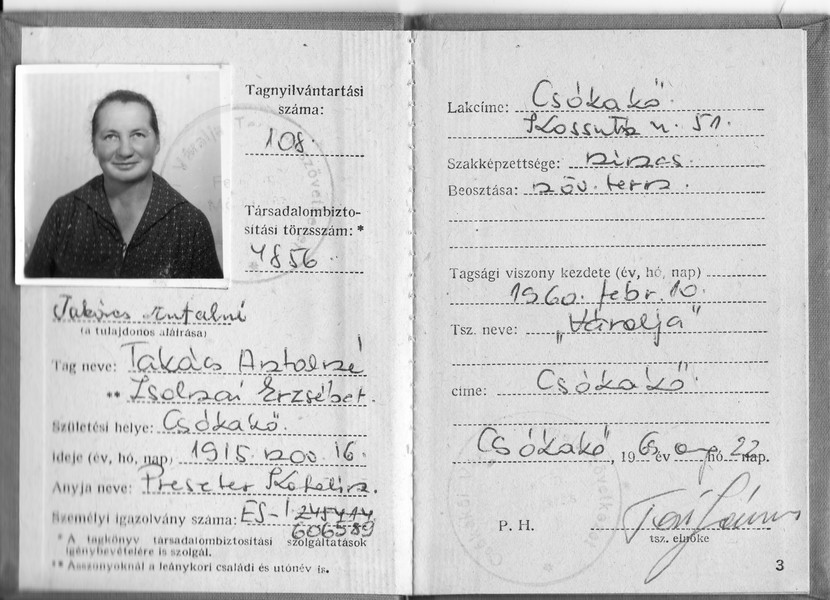 Tagnyilvántartási
száma:
108.
Társadalombizto-
sítási törzsszám: *
4856
Takács Antalné
(a tulajdonos aláírása)
Tag neve: Takács Antalné
** Zsolnai Erzsébet.
Születési helye: Csókakő.
Ideje (év, hó, nap) 1915. nov. 16.
Anyja neve: Preszter Katalin.
Személyi igazolvány száma: ES-I
606589
* A tagkönyv társadalombiztosítási szolgáltatások
igénybevételére is szolgál.
** Asszonyoknál a leánykori családi és utónév is.
Lakcíme: Csókakő.
Kossuth u. 51.
Szakképzettsége: nincs.
Beosztása: növ. term.
Tagsági viszony kezdete (év, hó, nap)
1960. febr. 10.
Tsz. neve: „Váralja"
címe: Csókakő.
Csókakő, 196 év hó 22 nap.
P. H.
tsz. elnöke
3